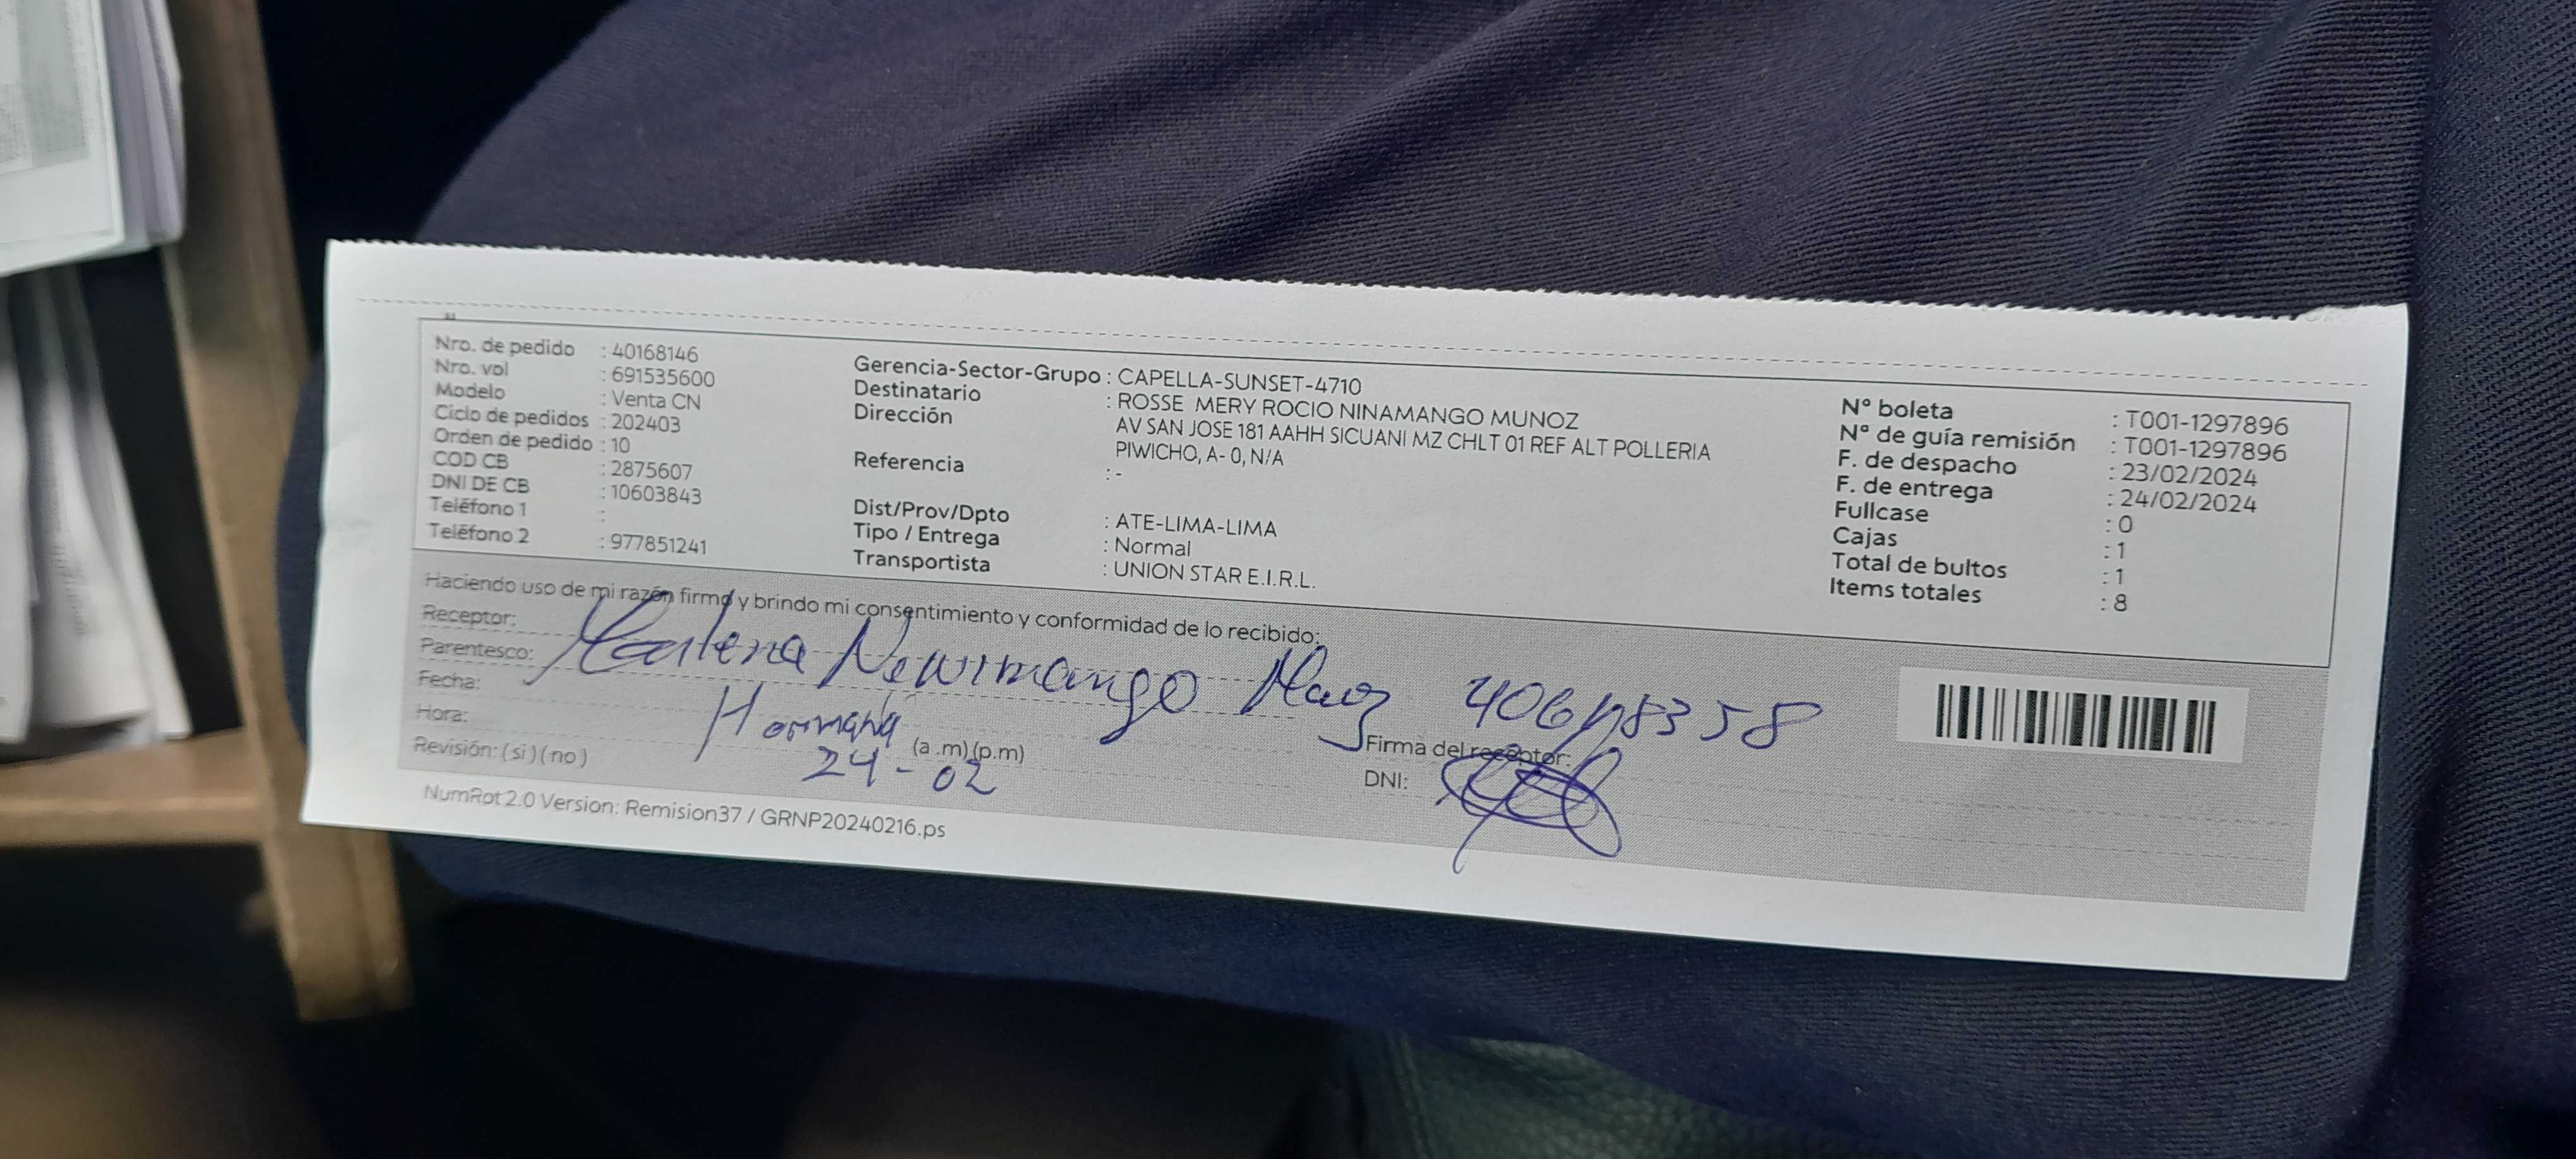 Nro. de pedido : 40168146
Nro. vol : 691535600
Modelo : Venta CN
Ciclo de pedidos : 202403
Orden de pedido : 10
COD CB : 2875607
DNI DE CB : 10603843
Teléfono 1 :
Teléfono 2 : 977851241
Gerencia-Sector-Grupo : CAPELLA-SUNSET-4710
Destinatario : ROSSE MERY ROCIO NINAMANGO MUNOZ
Dirección AV SAN JOSE 181 AAHH SICUANI MZ CHLT 01 REF ALT POLLERIA
PIWICHO, A- 0, N/A
Referencia : -
Dist/Prov/Dpto : ATE-LIMA-LIMA
Tipo / Entrega : Normal
Transportista : UNION STAR E.I.R.L.
N° boleta : T001-1297896
N° de guía remisión : T001-1297896
F. de despacho : 23/02/2024
F. de entrega : 24/02/2024
Fullcase : 0
Cajas : 1
Total de bultos : 1
Items totales : 8
Haciendo uso de mi razón firmo y brindo mi consentimiento y conformidad de lo recibido:
Receptor:
Parentesco:
Fecha: Hermana
Hora: (a .m) (p.m)
24-02
Revisión: ( si ) ( no )
Firma del receptor:
DNI:
NumRot 2.0 Version: Remision37 / GRNP20240216.ps